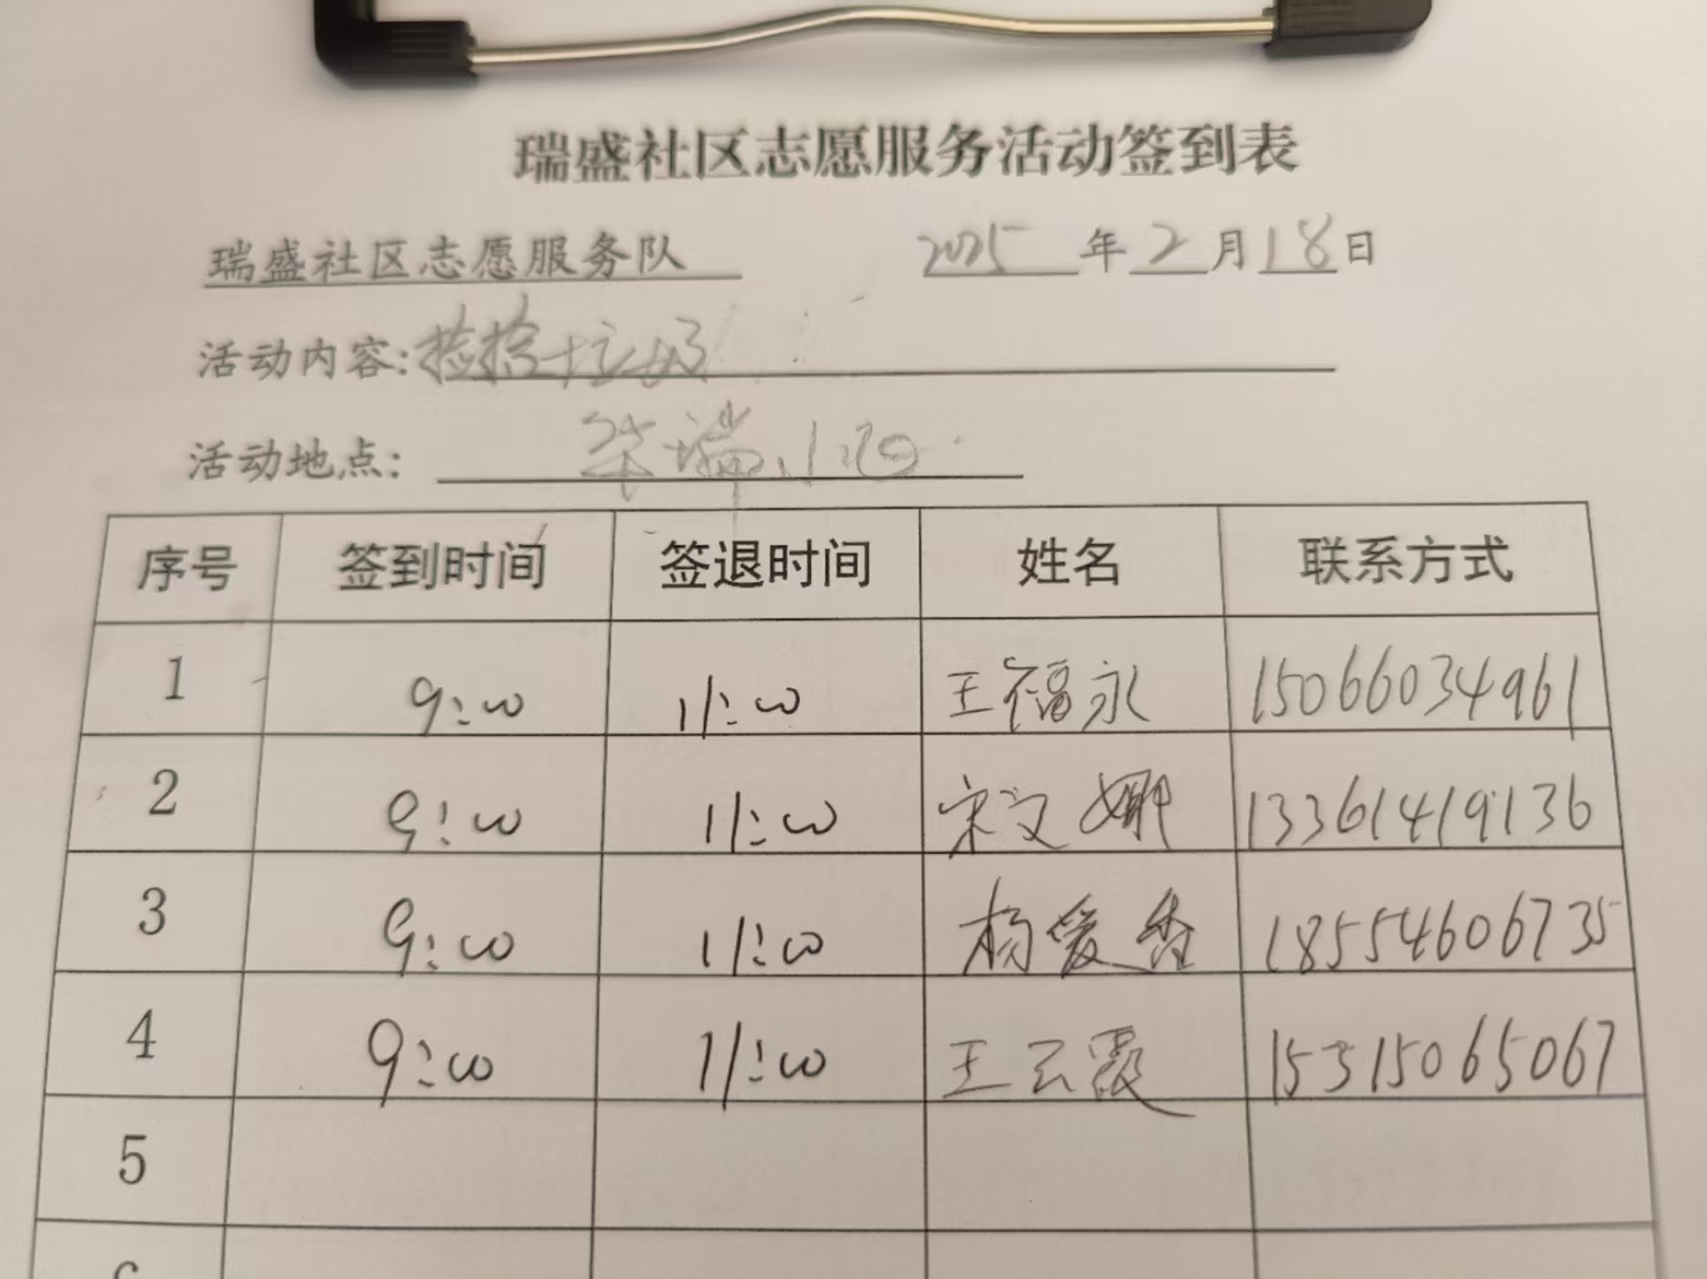 瑞盛社区志愿服务活动签到表
瑞盛社区志愿服务队 2025年2月18日
活动内容:捡拾垃圾
活动地点: 荣瑞小区
序号 签到时间 签退时间 姓名 联系方式
1 9:00 11:00 王福永 15066034961
2 9:00 11:00 宋文娜 13361419136
3 9:00 11:00 杨爱香 18554606735
4 9:00 11:00 王云霞 15315065067
5